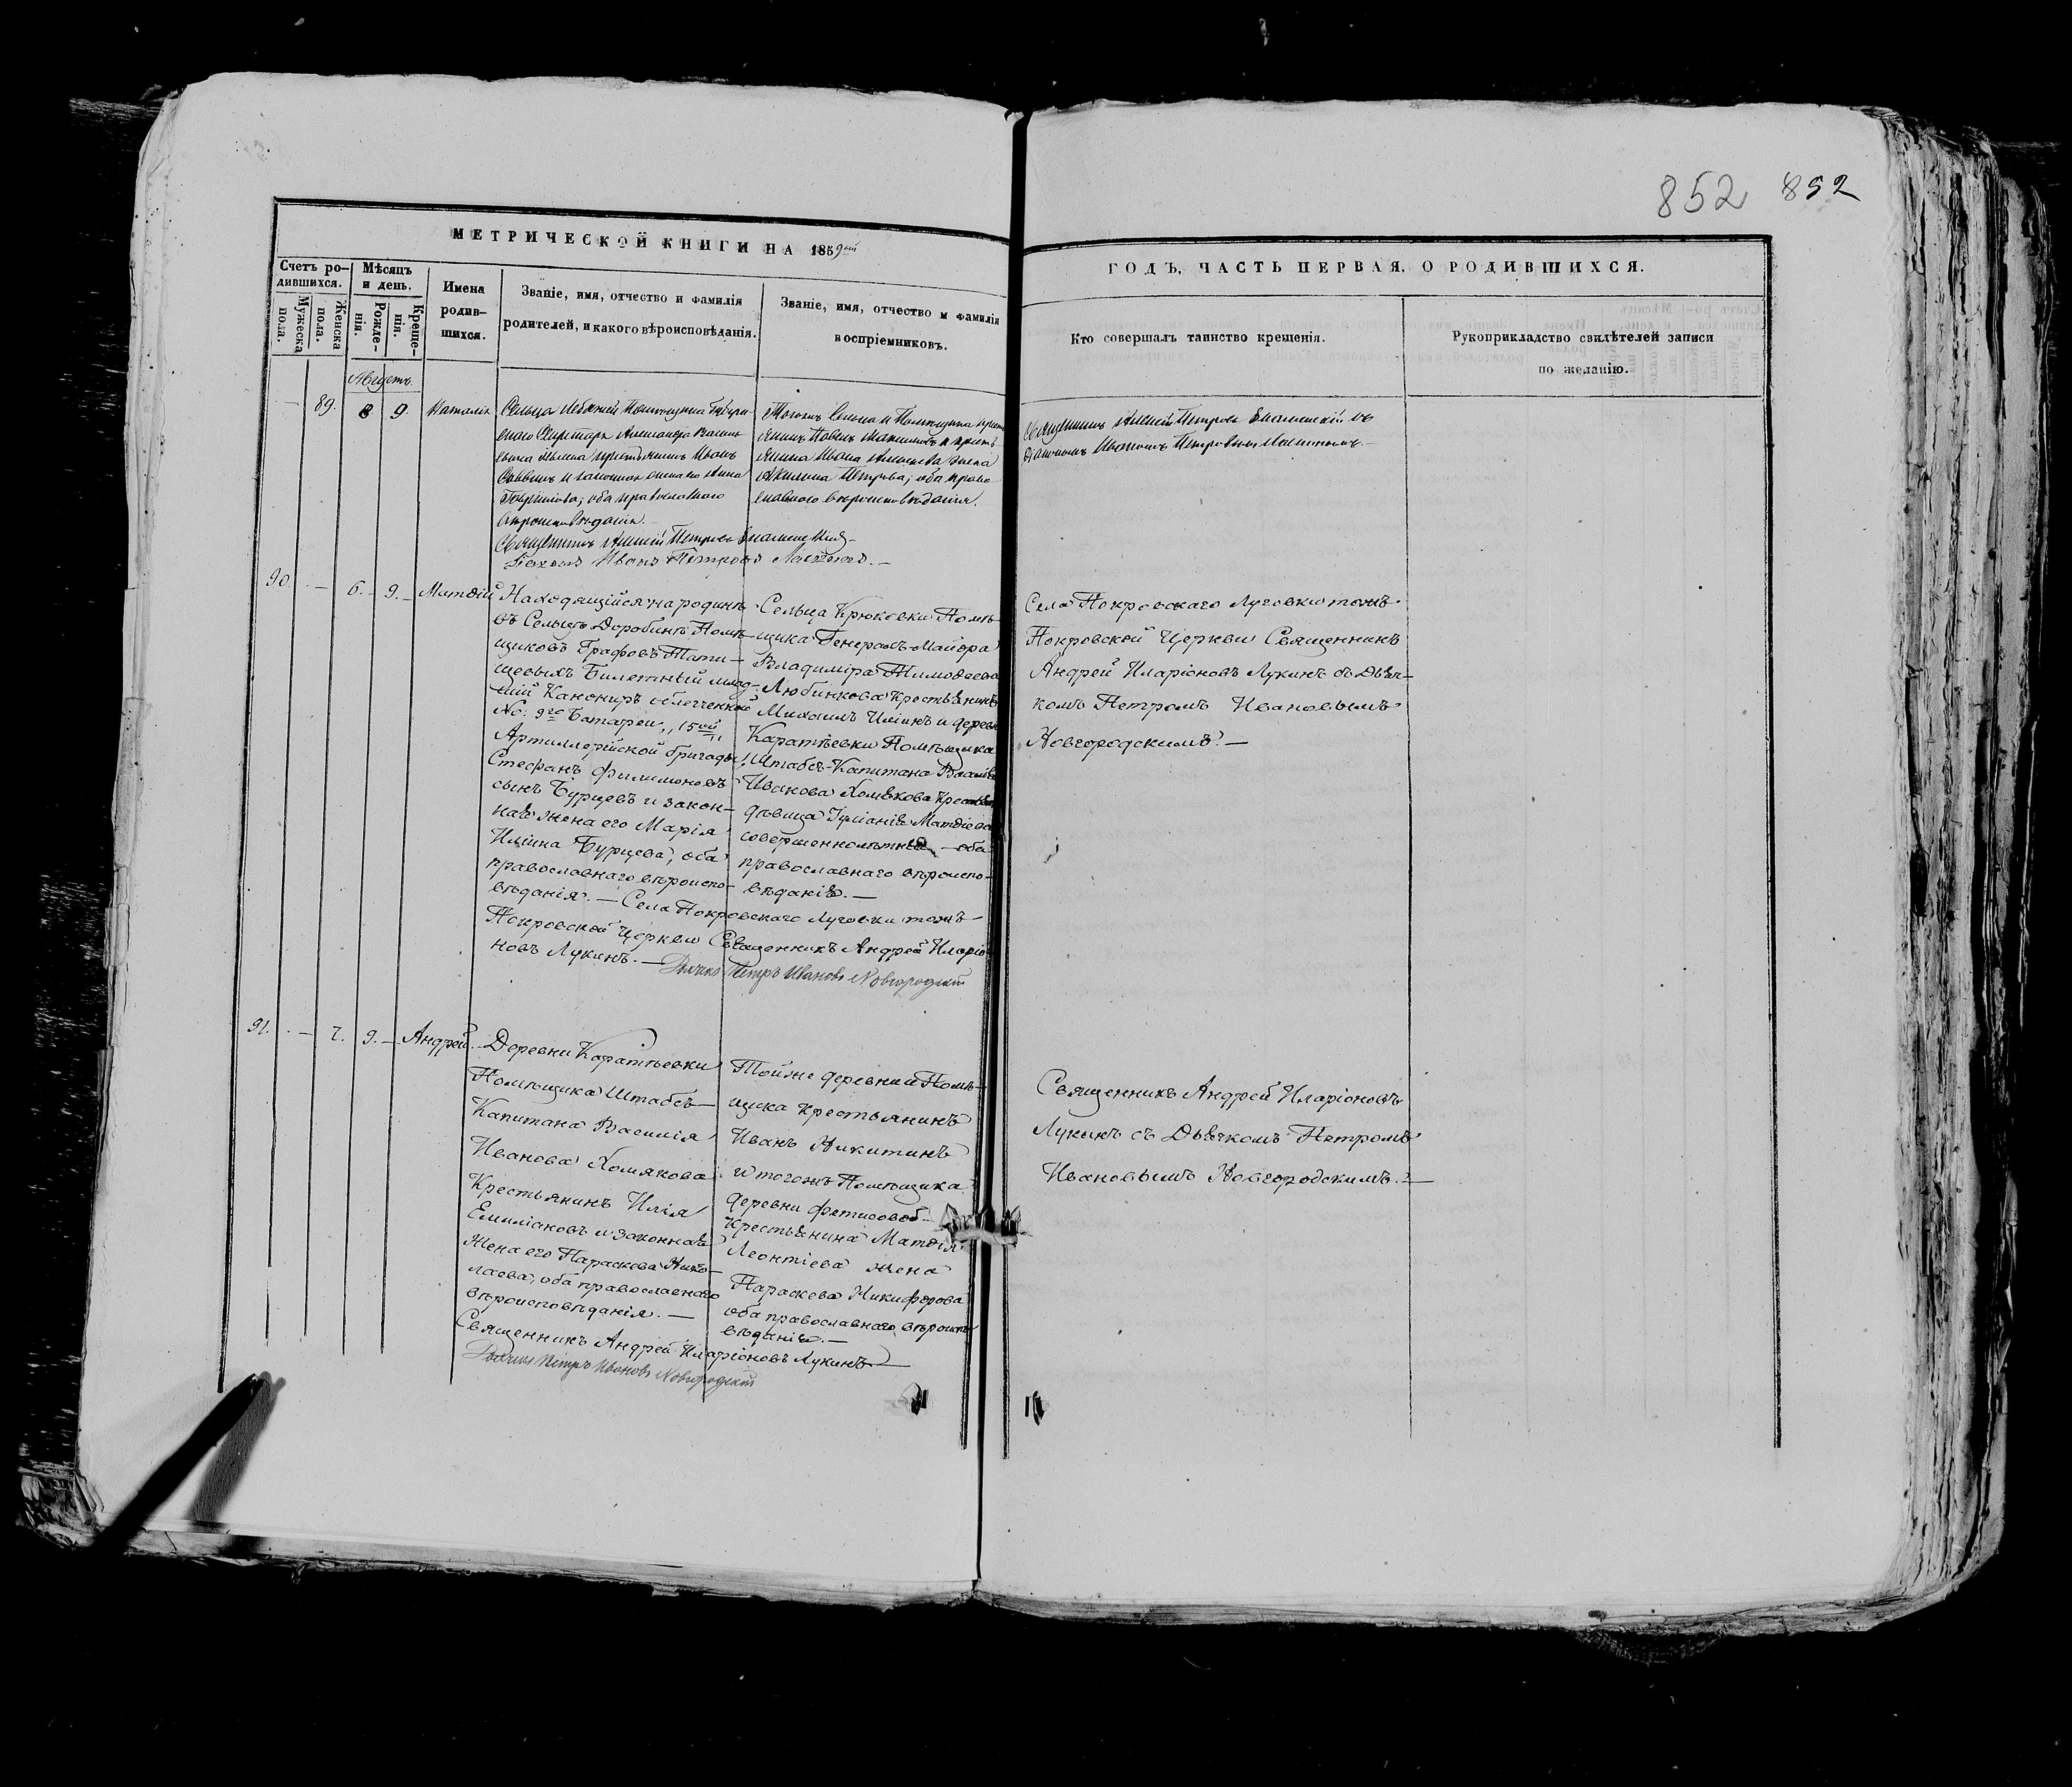 852 852
МЕТРИЧЕСКОЙ КНИГИ НА 1859
ГОДЪ, ЧАСТЬ ПЕРВАЯ, О РОДИВШИХСЯ.
Счетъ ро-
дившихся.
Мужеска
пола.
Женска
пола.
Мѣсяцъ
и день.
Рожде-
нія.
Креще-
нія.
Имена
родив-
шихся.
Званіе, имя, отчество и фамилія
родителей, и какого вѣроисповѣданія.
Званіе, имя, отчество и фамилія
воспріемниковъ.
Кто совершалъ таинство крещенія.
Рукоприкладство свидѣтелей записи
по желанію.
Августъ
— 89. 8 9. Наталія
Сельца
Секретаря Александра
крестьянинъ Иванъ
и законная жена его Анна
оба православнаго
вѣроисповѣданія.
Священникъ Алексѣй Петровъ
Иванъ Петровъ
Тогожъ Сельца и Помѣщика
Павелъ Максимовъ и
Ивана Алексѣева жена
Акилина Петрова; оба право
славнаго вѣроисповѣданія.
Священникъ Алексѣй Петровъ съ
Иваномъ Петровымъ
90. — 6. 9. Матѳій
Находящійся на родинѣ
въ Сельцѣ Доробинѣ Помѣ-
щиковъ Графовъ Тати-
щевыхъ Билетный млад-
шій Канониръ облегченной
No. 9го Батареи, 15ой
Артиллерійской бригады
Стефанъ Филимоновъ
сынъ Бурцевъ и закон-
ная жена его Марія
Ильина Бурцева, оба
православнаго вѣроиспо-
вѣданія. — Села Покровскаго Луговки тожъ
Покровской Церкви Священникъ Андрей Иларіо
новъ Лукинъ. — Дьячекъ Петръ Ивановъ Новгородскій
Сельца Крюковки Помѣ-
щика Генералъ-Маіора
Владиміра Тимоѳеева
Любинкова Крестьянинъ
Михаилъ Ильинъ и деревни
Каратѣевки Помѣщика
Штабсъ-Капитана Василія
Иванова Хомякова
дѣвица Іуліанія Матѳіева
совершеннолѣтняя — оба
православнаго вѣроиспо-
вѣданія. —
Села Покровскаго Луговки тожъ
Покровской Церкви Священникъ
Андрей Иларіоновъ Лукинъ съ Дьяч-
комъ Петромъ Ивановымъ
Новгородскимъ. —
91. — 7. 9. — Андрей.
Деревни Каратѣевки
Помѣщика Штабсъ-
Капитана Василія
Иванова Хомякова
Крестьянинъ Илія
Емиліановъ и законная
жена его Параскева Нико-
лаева, оба православнаго
вѣроисповѣданія. —
Священникъ Андрей Иларіоновъ Лукинъ
Дьячекъ Петръ Ивановъ Новгородскій
Той же деревни и Помѣ-
щика крестьянинъ
Иванъ Никитинъ
и тогожъ Помѣщика
деревни Фетисовой
крестьянина Матѳія
Леонтіева жена
Параскева Никифорова
оба православнаго вѣроиспо
вѣданія. —
Священникъ Андрей Иларіоновъ
Лукинъ съ Дьячкомъ Петромъ
Ивановымъ Новгородскимъ. —